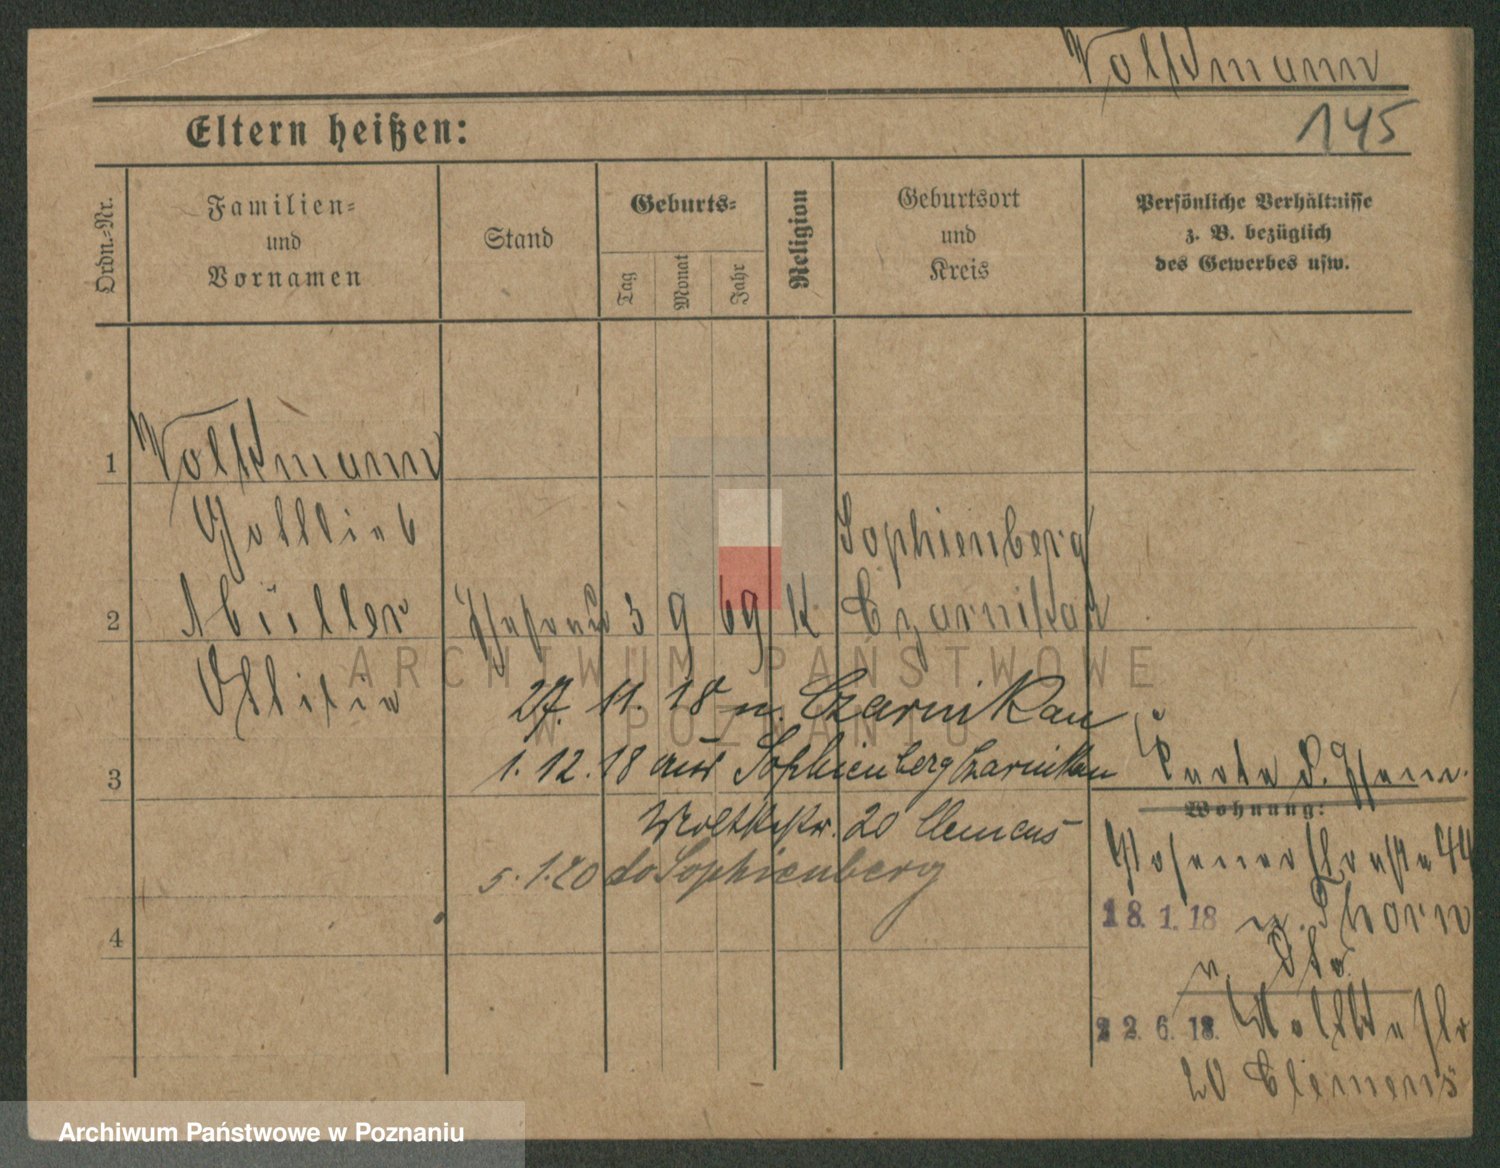 Volkmann
145
Eltern heißen:
Ordn.-Nr.
Familien-
und
Vornamen
Stand
Geburts-
Tag
Monat
Jahr
Religion
Geburtsort
und
Kreis
Persönliche Verhältnisse
z. B. bezüglich
des Gewerbes usw.
1
Volkmann
Gottlieb
Sophienberg
2
Müller
Ehefrau 3 9 69 K. Czarnikau
Ottilie
27. 11. 18 n. Czarnikau
3
1. 12. 18 aus Sophienberg Czarnikau
Karte d.
Wohnung:
Moltkestr. 20 Clemens
Posenerstraße 44
5. 1. 20 do Sophienberg
18. 1. 18 n. Thorn
4
v.
22. 6. 18. Moltkestr
20 Clemens
ARCHIWUM PAŃSTWOWE
W POZNANIU
Archiwum Państwowe w Poznaniu